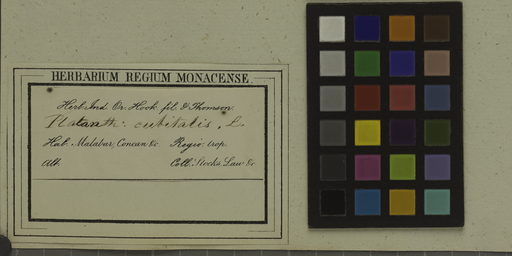 HERBARIUM REGIUM MONACENSE.
Herb. Ind. Or. Hook. fil. & Thomson.
Platanth: cubitalis, L.
Hab. Malabar, Concan &c Regio trop.
Alt. Coll. Stocks, Law &c